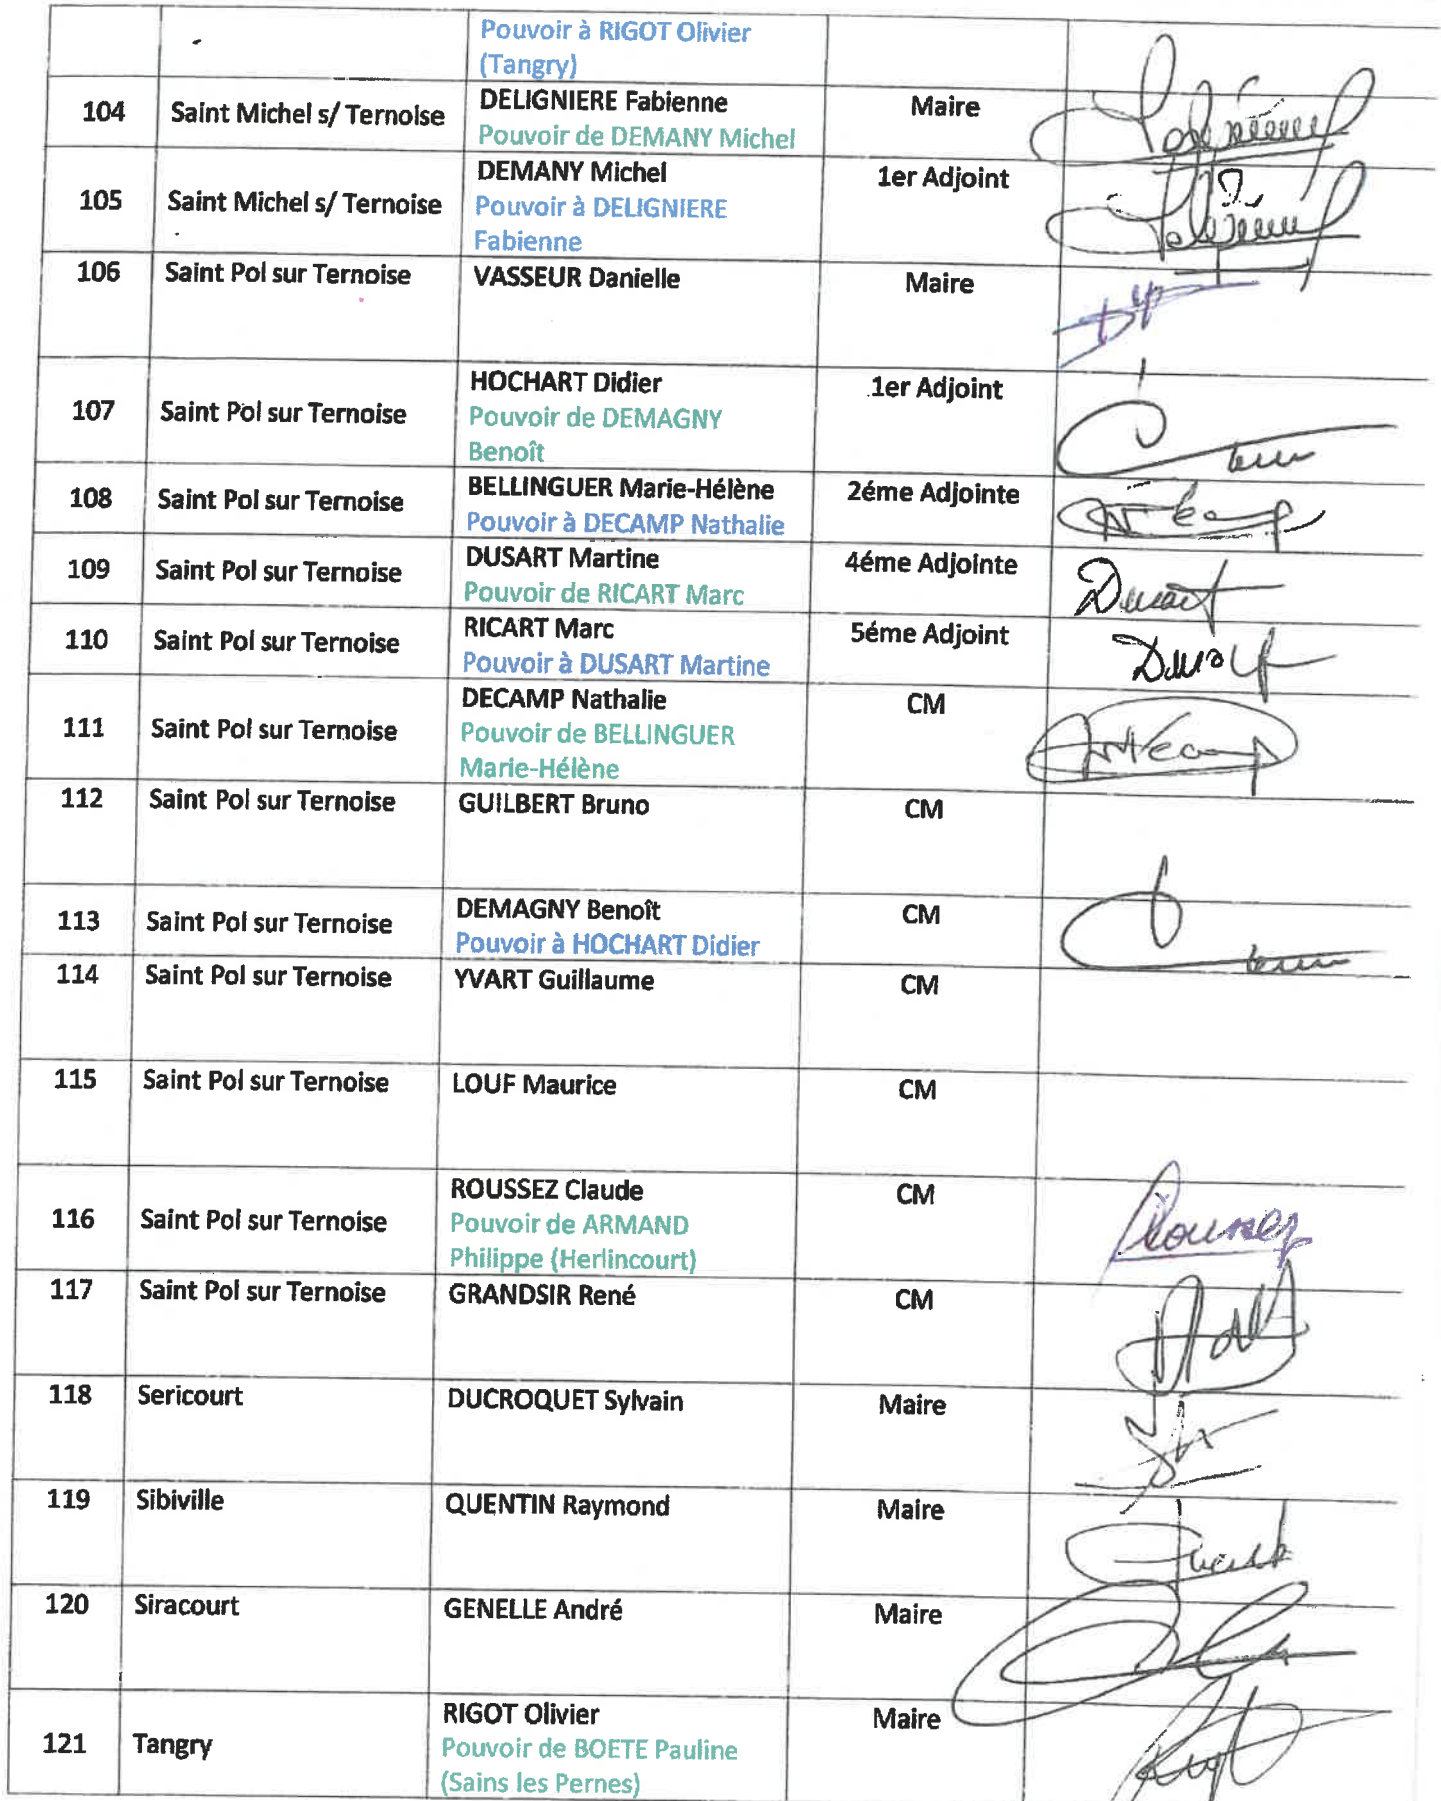 Pouvoir à RIGOT Olivier
(Tangry)
104 Saint Michel s/ Ternoise DELIGNIERE Fabienne Maire
Pouvoir de DEMANY Michel
105 Saint Michel s/ Ternoise DEMANY Michel 1er Adjoint
Pouvoir à DELIGNIERE
Fabienne
106 Saint Pol sur Ternoise VASSEUR Danielle Maire
107 Saint Pol sur Ternoise HOCHART Didier 1er Adjoint
Pouvoir de DEMAGNY
Benoît
108 Saint Pol sur Ternoise BELLINGUER Marie-Hélène 2éme Adjointe
Pouvoir à DECAMP Nathalie
109 Saint Pol sur Ternoise DUSART Martine 4éme Adjointe
Pouvoir de RICART Marc
Dusart
110 Saint Pol sur Ternoise RICART Marc 5éme Adjoint
Pouvoir à DUSART Martine
111 Saint Pol sur Ternoise DECAMP Nathalie CM
Pouvoir de BELLINGUER
Marie-Hélène
112 Saint Pol sur Ternoise GUILBERT Bruno CM
113 Saint Pol sur Ternoise DEMAGNY Benoît CM
Pouvoir à HOCHART Didier
114 Saint Pol sur Ternoise YVART Guillaume CM
115 Saint Pol sur Ternoise LOUF Maurice CM
116 Saint Pol sur Ternoise ROUSSEZ Claude CM
Pouvoir de ARMAND
Philippe (Herlincourt)
117 Saint Pol sur Ternoise GRANDSIR René CM
118 Sericourt DUCROQUET Sylvain Maire
119 Sibiville QUENTIN Raymond Maire
120 Siracourt GENELLE André Maire
121 Tangry RIGOT Olivier Maire
Pouvoir de BOETE Pauline
(Sains les Pernes)